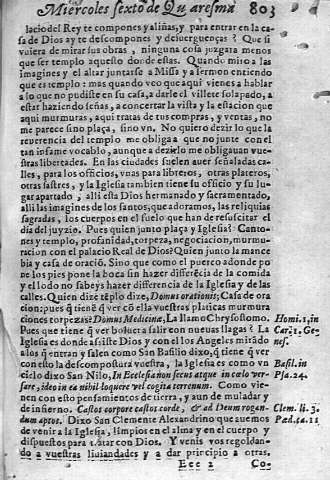 Miercoles sexto de Quaresma 803
lacio del Rey te compones y aliñas, y para entrar en la ca
sa de Dios ay te descompones y desuerguenças? Que si
vuiera de mirar sus obras, ninguna cosa juzgara menos
que ser templo aquesto donde estas. Quando miro a las
imagines y el altar juntarse a Missa y a sermon entiendo
que es templo: mas quando veo que aqui vienes a hablar
a lo que no pudiste en su casa, a darle el villete solapado, a
estar haziendo señas, a concertar la vista y la estacion que
aqui murmuras, aqui tratas de tus compras, y ventas, no
me parece sino plaça, sino vn. No quiero dezir lo que la
reuerencia del templo me obliga a que no junte con el
tan infame vocablo, aunque a dezirlo me obligauan vue-
stras libertades. En las ciudades suelen auer señaladas ca-
lles, para los officios, vnas para libreros, otras plateros,
otras sastres, y la Iglesia tambien tiene su officio y su lu-
gar apartado, alli esta Dios hermanado y sacramentado,
alli las imagines de los santos, que adoramos, las reliquias
sagradas, los cuerpos en el suelo que han de resuscitar el
dia del juyzio. Pues quien junto plaça y Iglesia? Canto-
nes y templo, profanidad, torpeza, negociacion, murmu-
racion con el palacio Real de Dios? Quien junto la mance
bia y casa de oració. Sino que como el puerco adonde po
ne los pies pone la boca sin hazer differẽcia de la comida
y el lodo no sabeys hazer differencia de la Iglesia y de las
calles. Quien dize tẽplo dize, Domus orationis; Casa de ora
cion; pues q̃ tiene q̃ ver cõ ella vuestras platicas murmura
ciones torpezas? Domus Medicinæ, La llamo Chrysostomo.
Pues que tiene q̃ ver boluera salir con nueuas llagas? La
Iglesia es donde assiste Dios y con el los Angeles mirãdo
a los q̃ entran y salen como San Basilio dixo, q̃ tiene q̃ ver
con esto la descompostura vuestra, la Iglesia es como vn
cielo dixo San Nilo, In Ecclesia non secus atque in cælo ver-
sare, ideo in ea nihil loquere vel cogita terrenum. Como vie-
nen con esto pensamientos de tierra, y aun de muladar y
de infierno. Castos corpore castos corde, & ad Deum rogan-
dum aptos. Dixo San Clemente Alexandrino que auemos
de venir a la Iglesia, limpios en el alma y en el cuerpo y
dispuestos para tratar con Dios. Y venis vos regoldan-
do a vuestras liuiandades y a dar principio a otras.
Eee 2 Co-
Homi. 1, in
Gene-
nes.
Basil. in
Psa. 24.
Clem. li. 3.
Ped. ca. 11